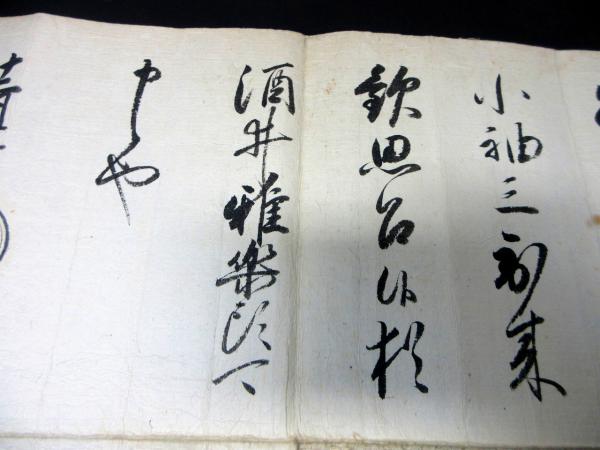 小袖三到来
歓思召候於
酒井雅楽頭可
申候也